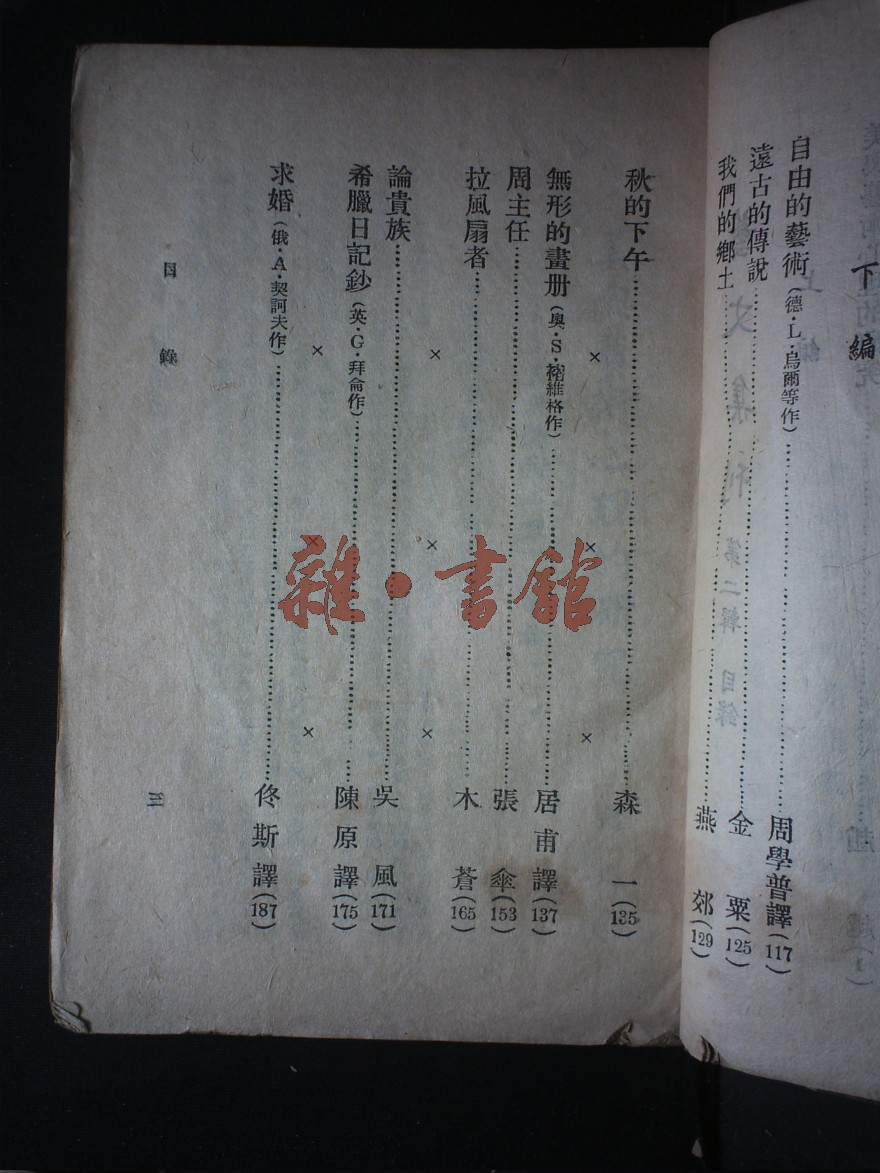 下編
自由的藝術(德·L·烏爾等作)……周學普譯(117)
遠古的傳說……金粟(125)
我們的鄉土……燕郊(129)
秋的下午……森一(135)
× × ×
無形的畫册(奧·S·褚維格作)……居甫譯(137)
周主任……張傘(153)
拉風扇者……木蒼(165)
× × ×
論貴族……吳風(171)
希臘日記鈔(英·G·拜侖作)……陳原譯(175)
× × ×
求婚(俄·A·契訶夫作)……佟斯譯(187)
目錄
三
雜·書館